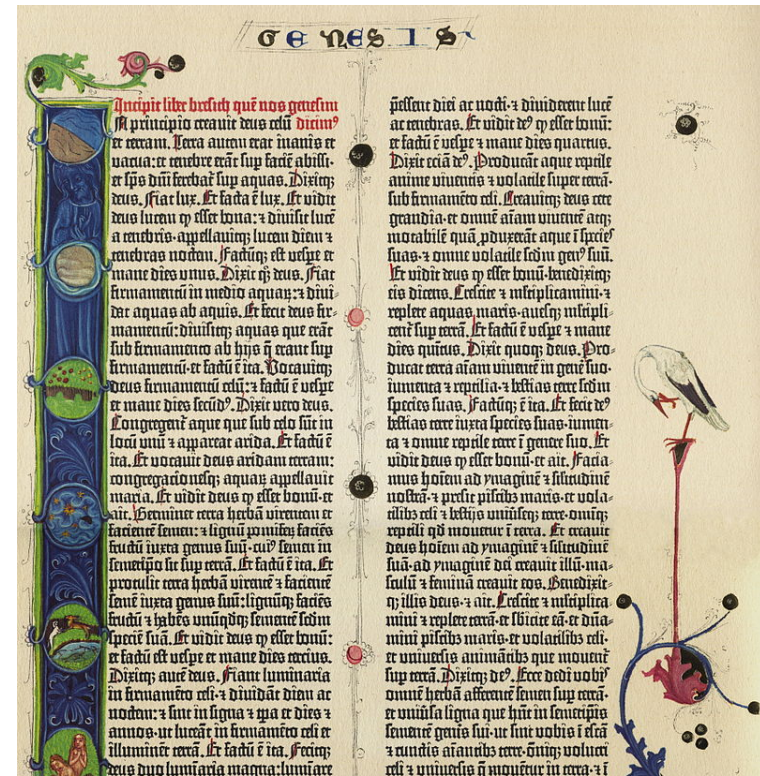 GENESIS
Incipit liber bresich quē nos genesim
N principio creauit deus celū dicimꝰ
et terram. Terra autem erat inanis et
vacua: et tenebre erāt sup faciē abissi:
et sp̄s dn̄i ferebat̄ sup aquas. Dixitq̄
deus. Fiat lux. Et facta ē lux. Et vidit
deus lucem ꝙ esset bona: ⁊ diuisit lucē
a tenebris. appellauitq̄ lucem diem ⁊
tenebras noctem. Factūq̄ est vespe et
mane dies vnus. Dixit qꝫ deus. Fiat
firmamentū in medio aquaꝝ: ⁊ diui-
dat aquas ab aquis. Et fecit deus fir-
mamentū: diuisitq̄ aquas que erāt
sub firmamento ab hijs q̄ erant sup
firmamentū: et factū ē ita. Vocauitq̄
deus firmamentū celū: ⁊ factū ē vespe
et mane dies secūdꝰ. Dixit vero deus.
Congregent̄ aque que sub celo sūt in
locū vnū ⁊ appareat arida. Et factū ē
ita. Et vocauit deus aridam terram:
congregacionesq̄ aquaꝝ appellauit
maria. Et vidit deus ꝙ esset bonū. et
ait. Germinet terra herbā virentem et
facientē semen: ⁊ lignū pomifeꝝ faciēs
fructū iuxta genus suū. cuiꝰ semen in
semetipo sit sup terrā. Et factū ē ita. Et
protulit terra herbā virentē ⁊ facientē
semē iuxta genus suū: lignūq̄ faciēs
fructū ⁊ habēs vnūqdq̄ sementē scd̄m
speciē suā. Et vidit deus ꝙ esset bonū:
et factū est vespe et mane dies tercius.
Dixitq̄ autē deus. Fiant luminaria
in firmamēto celi. et diuidāt diem ac
noctem: ⁊ sint in signa ⁊ tp̄a et dies ⁊
annos. ut luceāt in firmamēto celi et
illuminent terrā. Et factū ē ita. Fecitq̄
deus duo lumīaria magna: lumīare
p̄essent diei ac nocti. ⁊ diuiderent lucē
ac tenebras. Et vidit deꝰ ꝙ esset bonū:
et factū ē vespe ⁊ mane dies quartus.
Dixit eciā deꝰ. Producāt aque reptile
anime viuentis ⁊ volatile super terrā.
sub firmamēto celi. Creauitq̄ deus cete
grandia. et omnē aīam viuentē atq̄
motabilē quā ꝓduxerāt aque ī species
suas. ⁊ omne volatile scd̄m genꝰ suū.
Et vidit deus ꝙ esset bonū. benedixitq̄
eis dicens. Crescite ⁊ ml̄tiplicamini. ⁊
replete aquas maris. auesq̄ ml̄tipli-
cent̄ sup terrā. Et factū ē vespe ⁊ mane
dies quītus. Dixit quoq̄ deus. Pro-
ducat terra aīam viuentē in genē suo.
iumenta ⁊ reptilia. ⁊ bestias terre scd̄m
species suas. Factūq̄ ē ita. Et fecit deꝰ
bestias terre iuxta species suas. iumen-
ta ⁊ omne reptile terre ī genere suo. Et
vidit deus ꝙ esset bonū. et ait. Facia-
mus hoīem ad ymaginē ⁊ sil̄itudinē
nostrā. ⁊ presit piscibꝫ maris. et vola-
tilibꝫ celi ⁊ bestijs vniūseq̄ terre. omīq̄
reptili qd̄ mouetur ī terra. Et creauit
deus hoīem ad ymaginē ⁊ sil̄itudinē
suā. ad ymaginē dei creauit illū. ma-
sculū ⁊ feminā creauit eos. Benedixit-
q̄ illis deus. ⁊ ait. Crescite ⁊ ml̄tiplica-
mini ⁊ replete terrā. et sb̄icite eā. et dn̄a-
mini piscibꝫ maris. et volatilibꝫ celi.
et vniuersis animātibꝫ que mouent̄
sup terrā. Dixitq̄ deꝰ. Ecce dedi vobis
omnē herbā afferentē semen sup terrā.
et vniūsa ligna que hn̄t in semetipīs
sementē genīs sui. ut sint vobis ī escā
⁊ cunctis aīantibꝫ terre. omīq̄ volucri
celi ⁊ vniuersis q̄ mouētur in terra. ⁊ ī